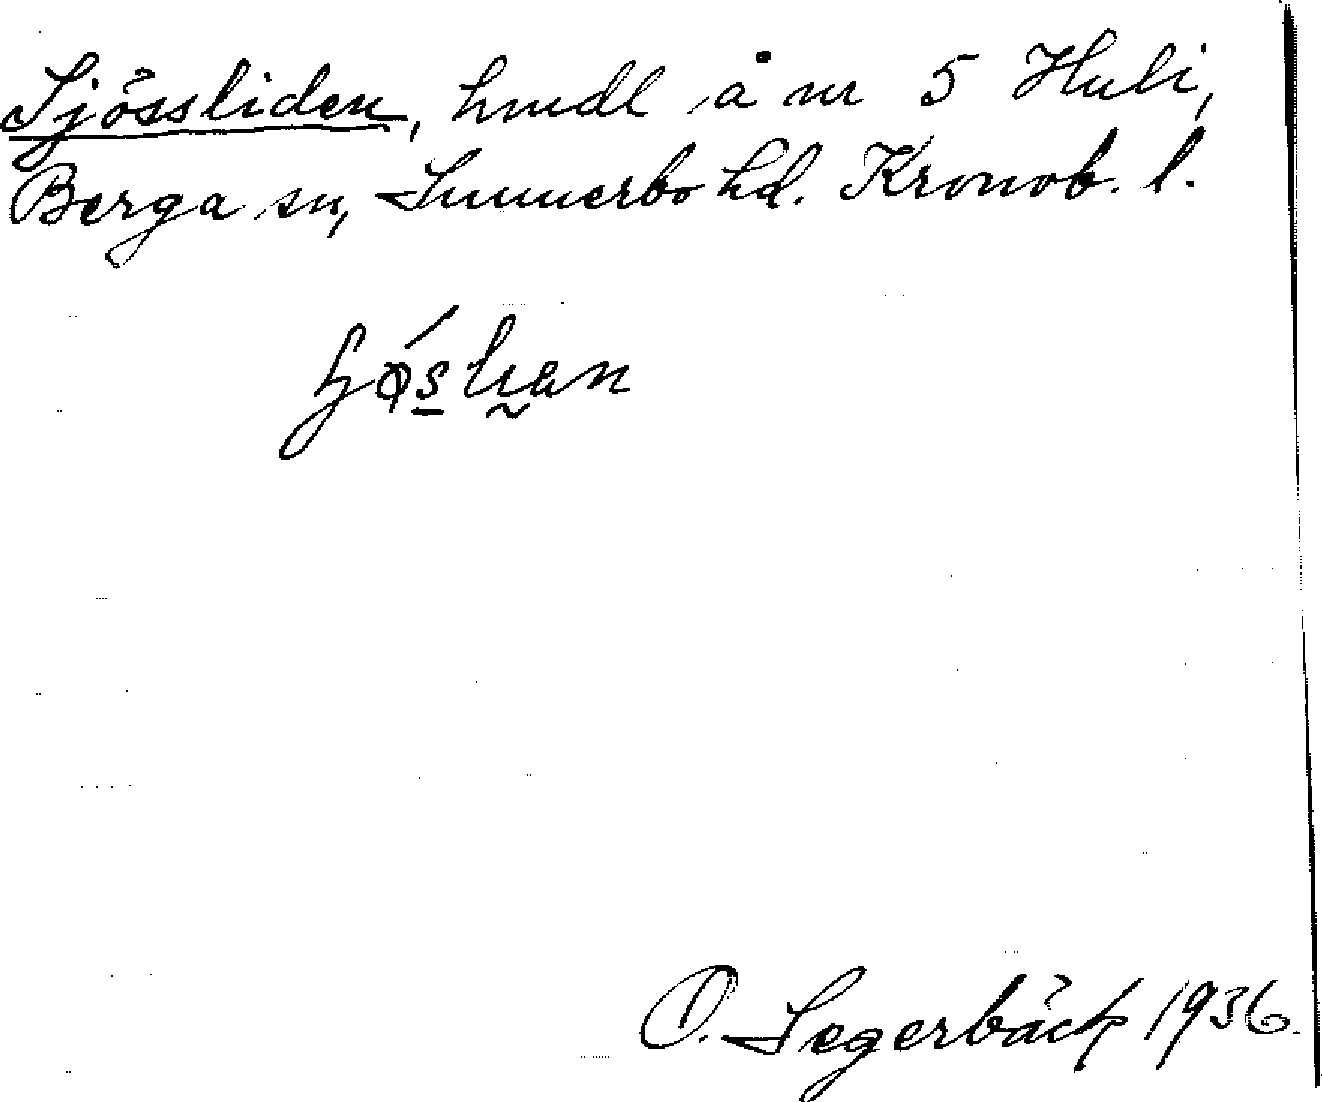 Sjössliden, hmdl å nr 5 Huli,
Berga sn, Sunnerbo hd. Kronob. l.
O. Segerbäck 1936.